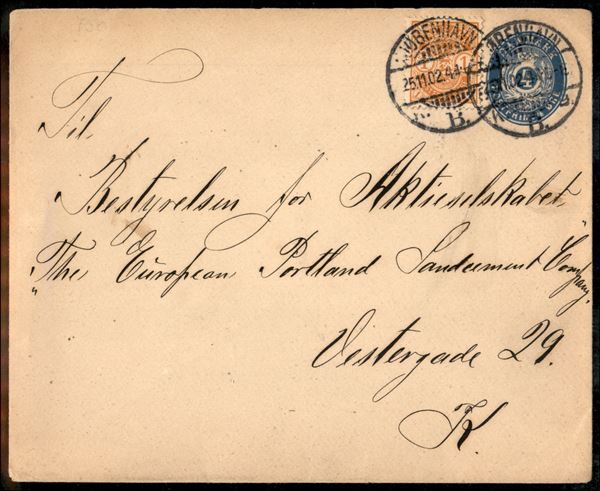 KJØBENHAVN KJØBENHAVN
25.11.02. B.
4
Til
Bestyrelsen for Aktieselskabet
"The Européan Portland Sandcement Company"
Vestergade 29.
K.